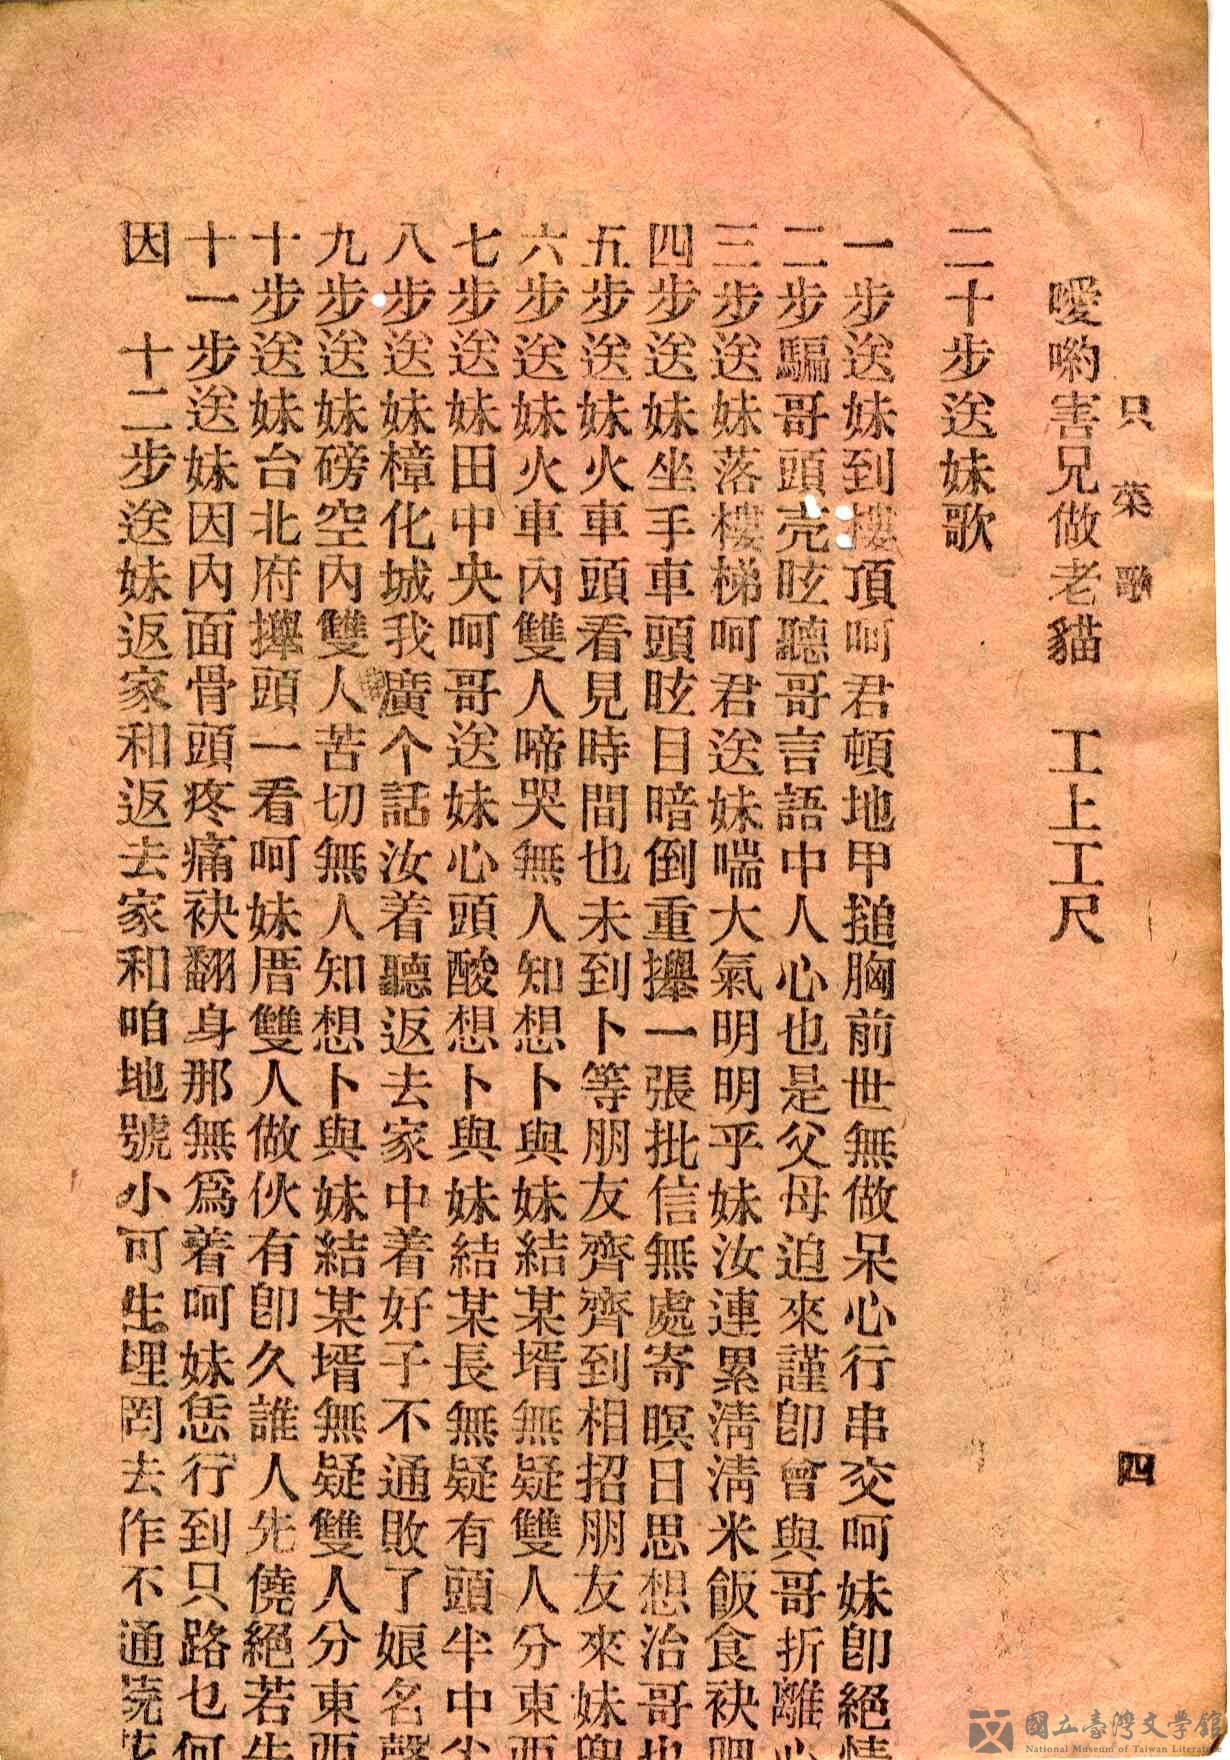 只菜歌 四
噯喲害兄做老貓 工上工尺
二十步送妹歌
一步送妹到樓頂呵君頓地甲搥胸前世無做呆心行串交呵妹卽絕情
二步騙哥頭壳眩聽哥言語中人心也是父母迫來謹卽會與哥折離心
三步送妹落樓梯呵君送妹喘大氣明明乎妹汝連累淸淸米飯食袂肥
四步送妹坐手車頭眩目暗倒重攑一張批信無處寄暝日思想治哥也
五步送妹火車頭看見時間也未到卜等朋友齊齊到相招朋友來妹
六步送妹火車內雙人啼哭無人知想卜與妹結某壻無疑雙人分東西
七步送妹田中央呵哥送妹心頭酸想卜與妹結某長無疑有頭半中尖
八步送妹樟化城我廣个話汝着聽返去家中着好子不通敗了娘名聲
九步送妹磅空內雙人苦切無人知想卜與妹結某壻無疑雙人分東西
十步送妹台北府攑頭一看呵妹厝雙人做伙有卽久誰人先僥絕若先
十一步送妹因內面骨頭疼痛袂翻身那無爲着呵妹恁行到只路乜何
因 十二步送妹返家和返去家和咱地號小可生埋罔去作不通
國立臺灣文學館
National Museum of Taiwan Literature